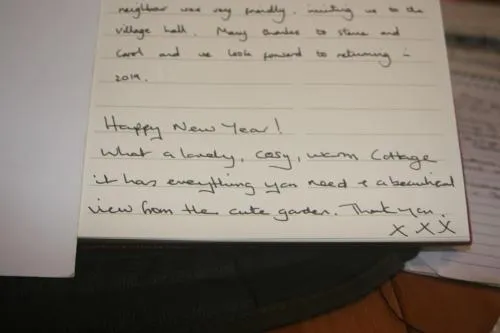 neighbour was very friendly, inviting us to the
village hall. Many thanks to Steve and
Carol and we look forward to returning -
2019.
Happy New Year!
What a lovely, cosy, warm Cottage
it has everything you need & a beautiful
view from the cute garden. Thank you.
x x x